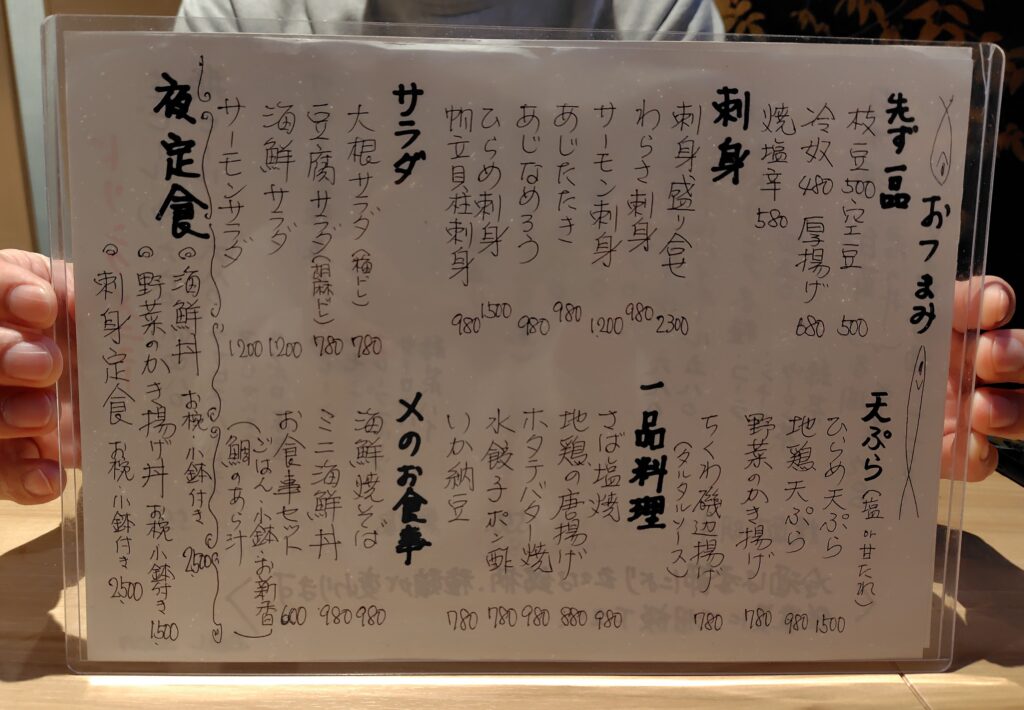 おつまみ
先ず一品
枝豆 500 空豆 500
冷奴 480 厚揚げ 680
焼塩辛 580
刺身
刺身盛り合せ 2300
わらさ刺身 980
サーモン刺身 1200
あじたたき 980
あじなめろう 980
ひらめ刺身 1500
帆立貝柱刺身 980
サラダ
大根サラダ(梅ドレ) 780
豆腐サラダ(胡麻ドレ) 780
海鮮サラダ 1200
サーモンサラダ 1200
天ぷら(塩 or 甘たれ)
ひらめ天ぷら 1500
地鶏天ぷら 980
野菜のかき揚げ 780
ちくわ磯辺揚げ 780
(タルタルソース)
一品料理
さば塩焼 980
地鶏の唐揚げ 880
ホタテバター焼 980
水餃子ポン酢 780
いか納豆 780
〆のお食事
海鮮焼そば 980
ミニ海鮮丼 980
お食事セット 600
(ごはん・小鉢・お新香
鯛のあら汁)
夜定食
海鮮丼 お椀・小鉢付き 2500
野菜のかき揚げ丼 お椀小鉢付き 1500
刺身定食 お椀・小鉢付き 2500